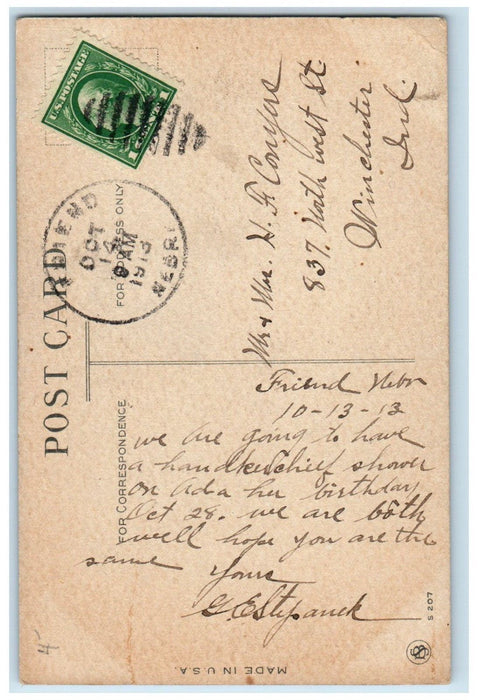 U.S. POSTAGE
1
FRIEND
OCT
14
8 AM
1913
NEBR.
POST CARD
FOR ADDRESS ONLY
Mr & Mrs. H F Conyers
837 North West St
Winchester
Ind.
FOR CORRESPONDENCE
Friend Nebr
10-13-13
we are going to have
a handkerschief shower
on Ada her birthday
Oct 28. we are both
well hope you are the
same
Yours
G E Stepanek
MADE IN U.S.A.
S 207